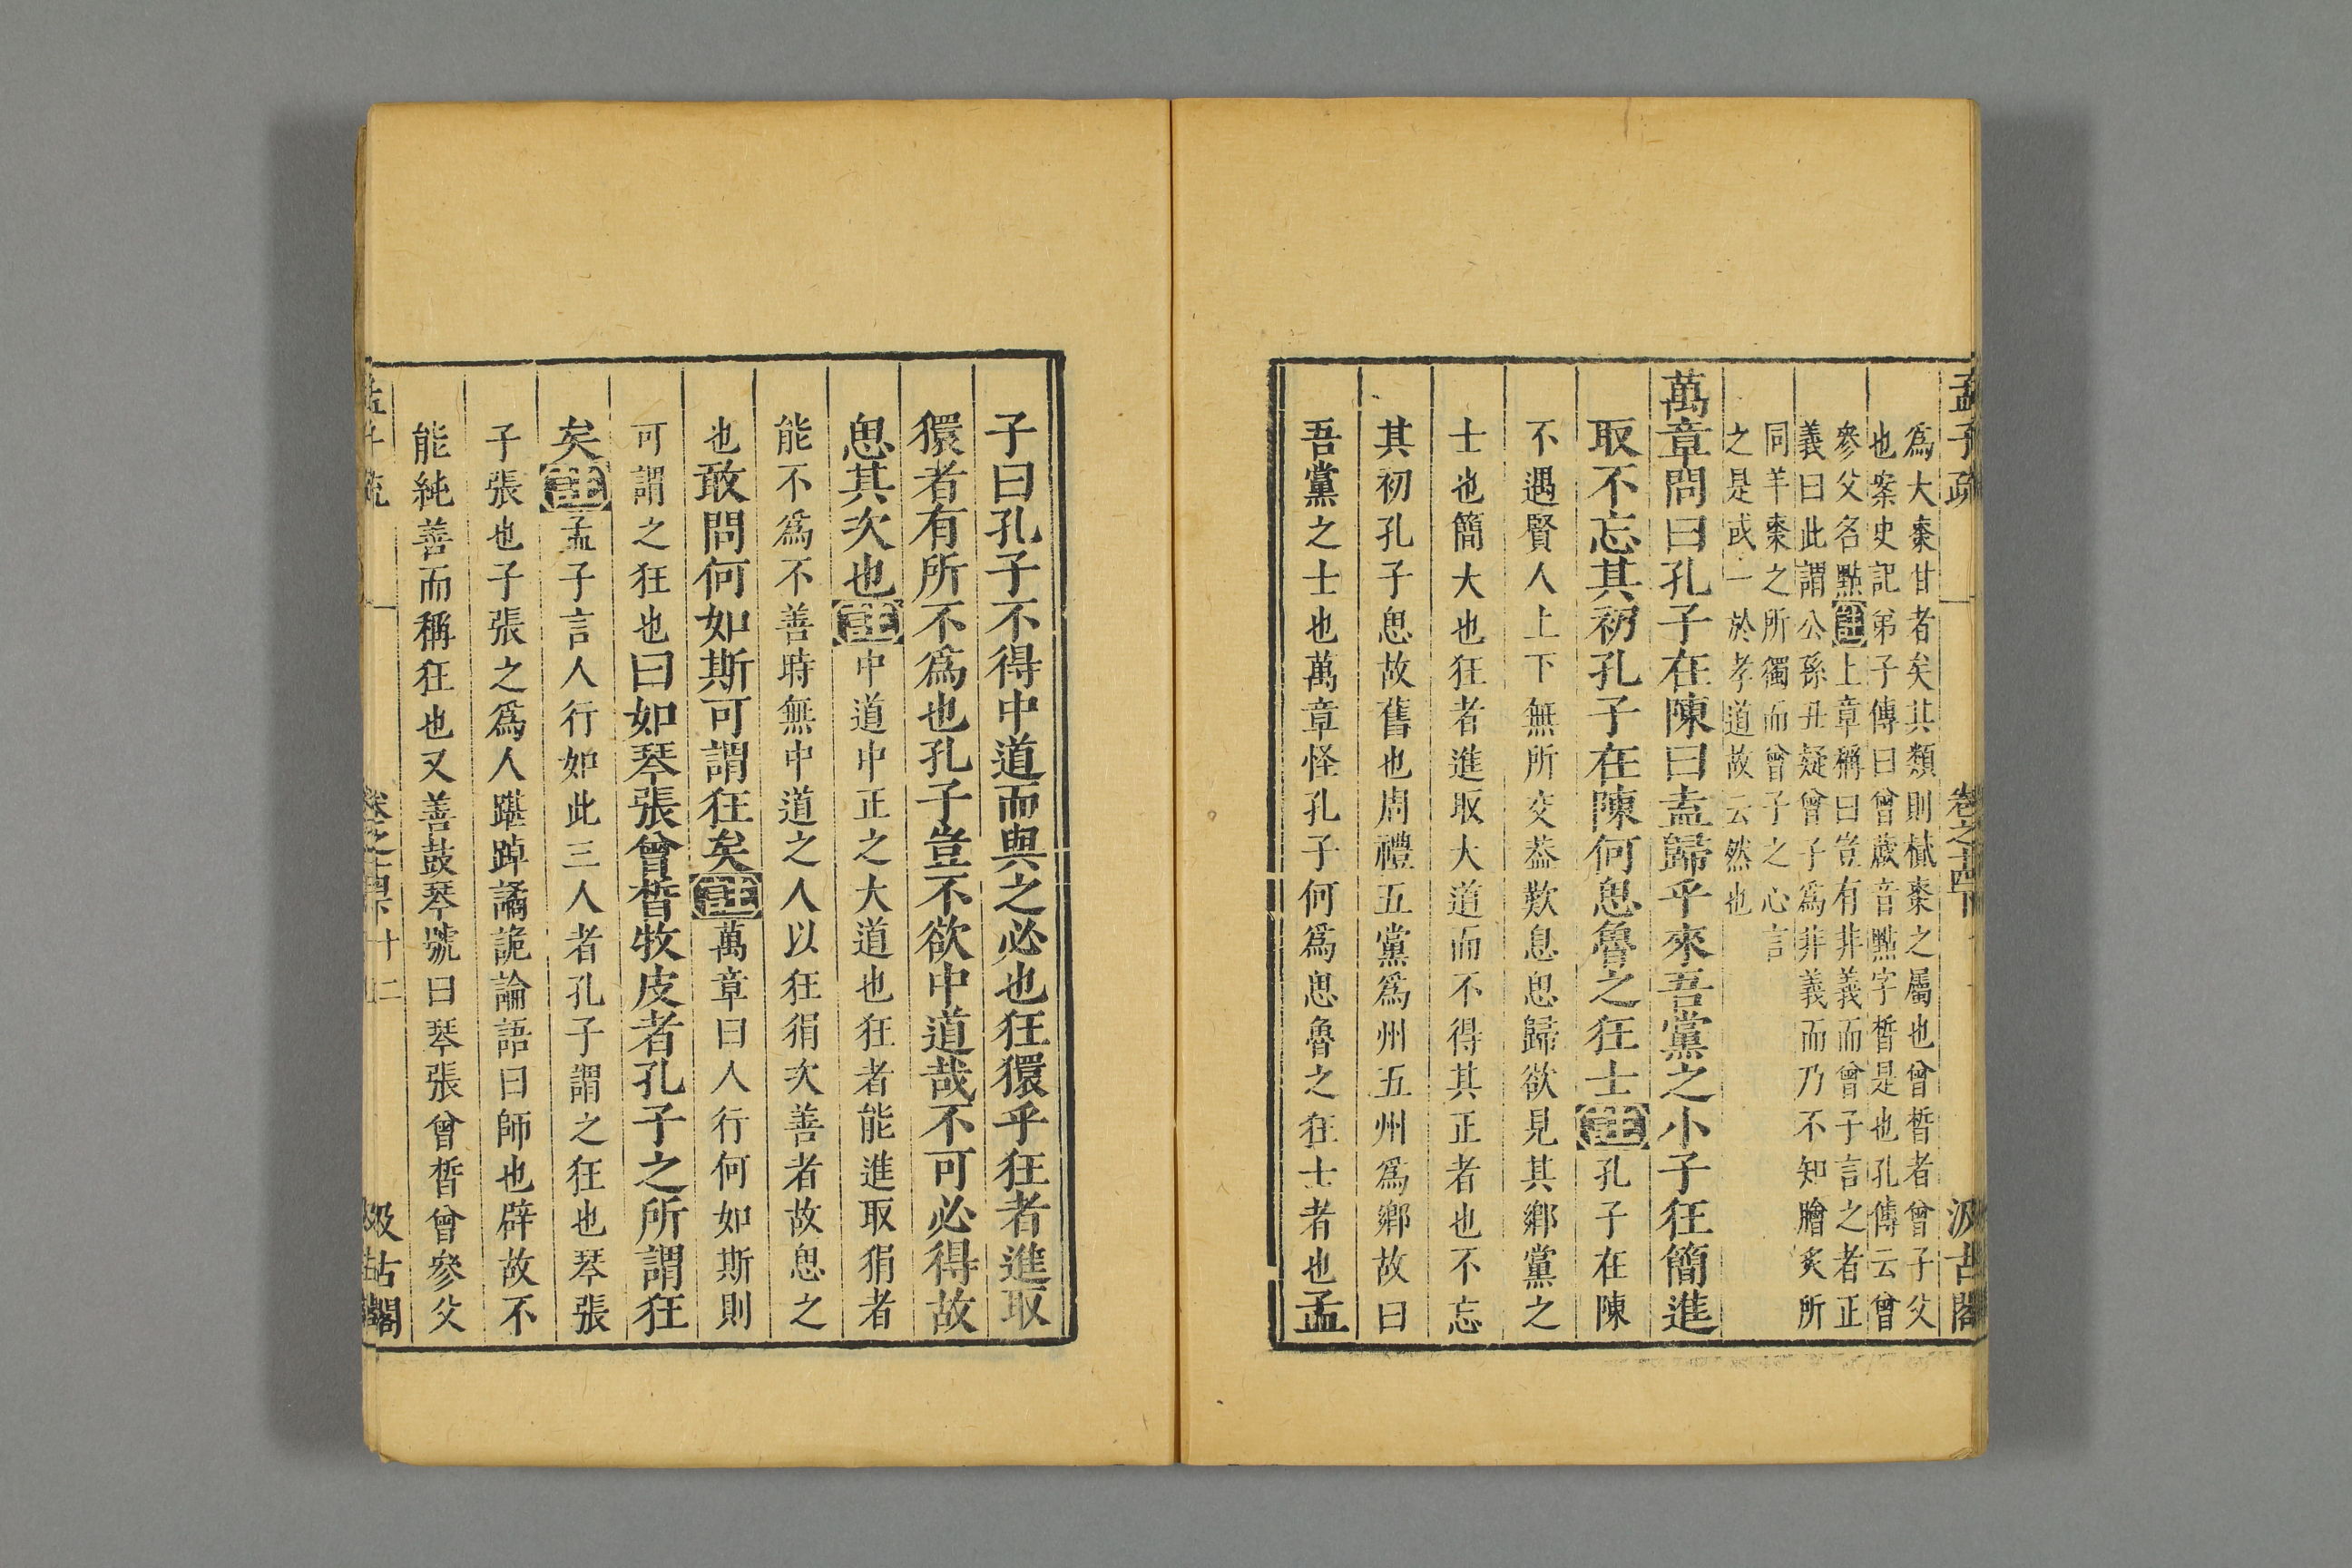 孟子疏 卷之十四下 汲古閣
爲大棗甘者矣其類則樲棗之屬也曾晳者曾子父
也案史記弟子傳曰曾蒧音點字晳是也孔傳云曾
參父名點註上章稱曰豈有非義而曾子言之者正
義曰此謂公孫丑疑曾子爲非義而乃不知膾炙所
同羊棗之所獨而曾子之心言
之是或一於孝道故云然也
萬章問曰孔子在陳曰盍歸乎來吾黨之小子狂簡進
取不忘其初孔子在陳何思魯之狂士註孔子在陳
不遇賢人上下無所交葢歎息思歸欲見其鄉黨之
士也簡大也狂者進取大道而不得其正者也不忘
其初孔子思故舊也周禮五黨爲州五州爲鄉故曰
吾黨之士也萬章怪孔子何爲思魯之狂士者也孟
子曰孔子不得中道而與之必也狂獧乎狂者進取
獧者有所不爲也孔子豈不欲中道哉不可必得故
思其次也註中道中正之大道也狂者能進取狷者
能不爲不善時無中道之人以狂狷次善者故思之
也敢問何如斯可謂狂矣註萬章曰人行何如斯則
可謂之狂也曰如琴張曾晳牧皮者孔子之所謂狂
矣註孟子言人行如此三人者孔子謂之狂也琴張
子張也子張之爲人踸踔譎詭論語曰師也辟故不
能純善而稱狂也又善鼓琴號曰琴張曾晳曾參父
孟子疏 卷之十四下 十二 汲古閣